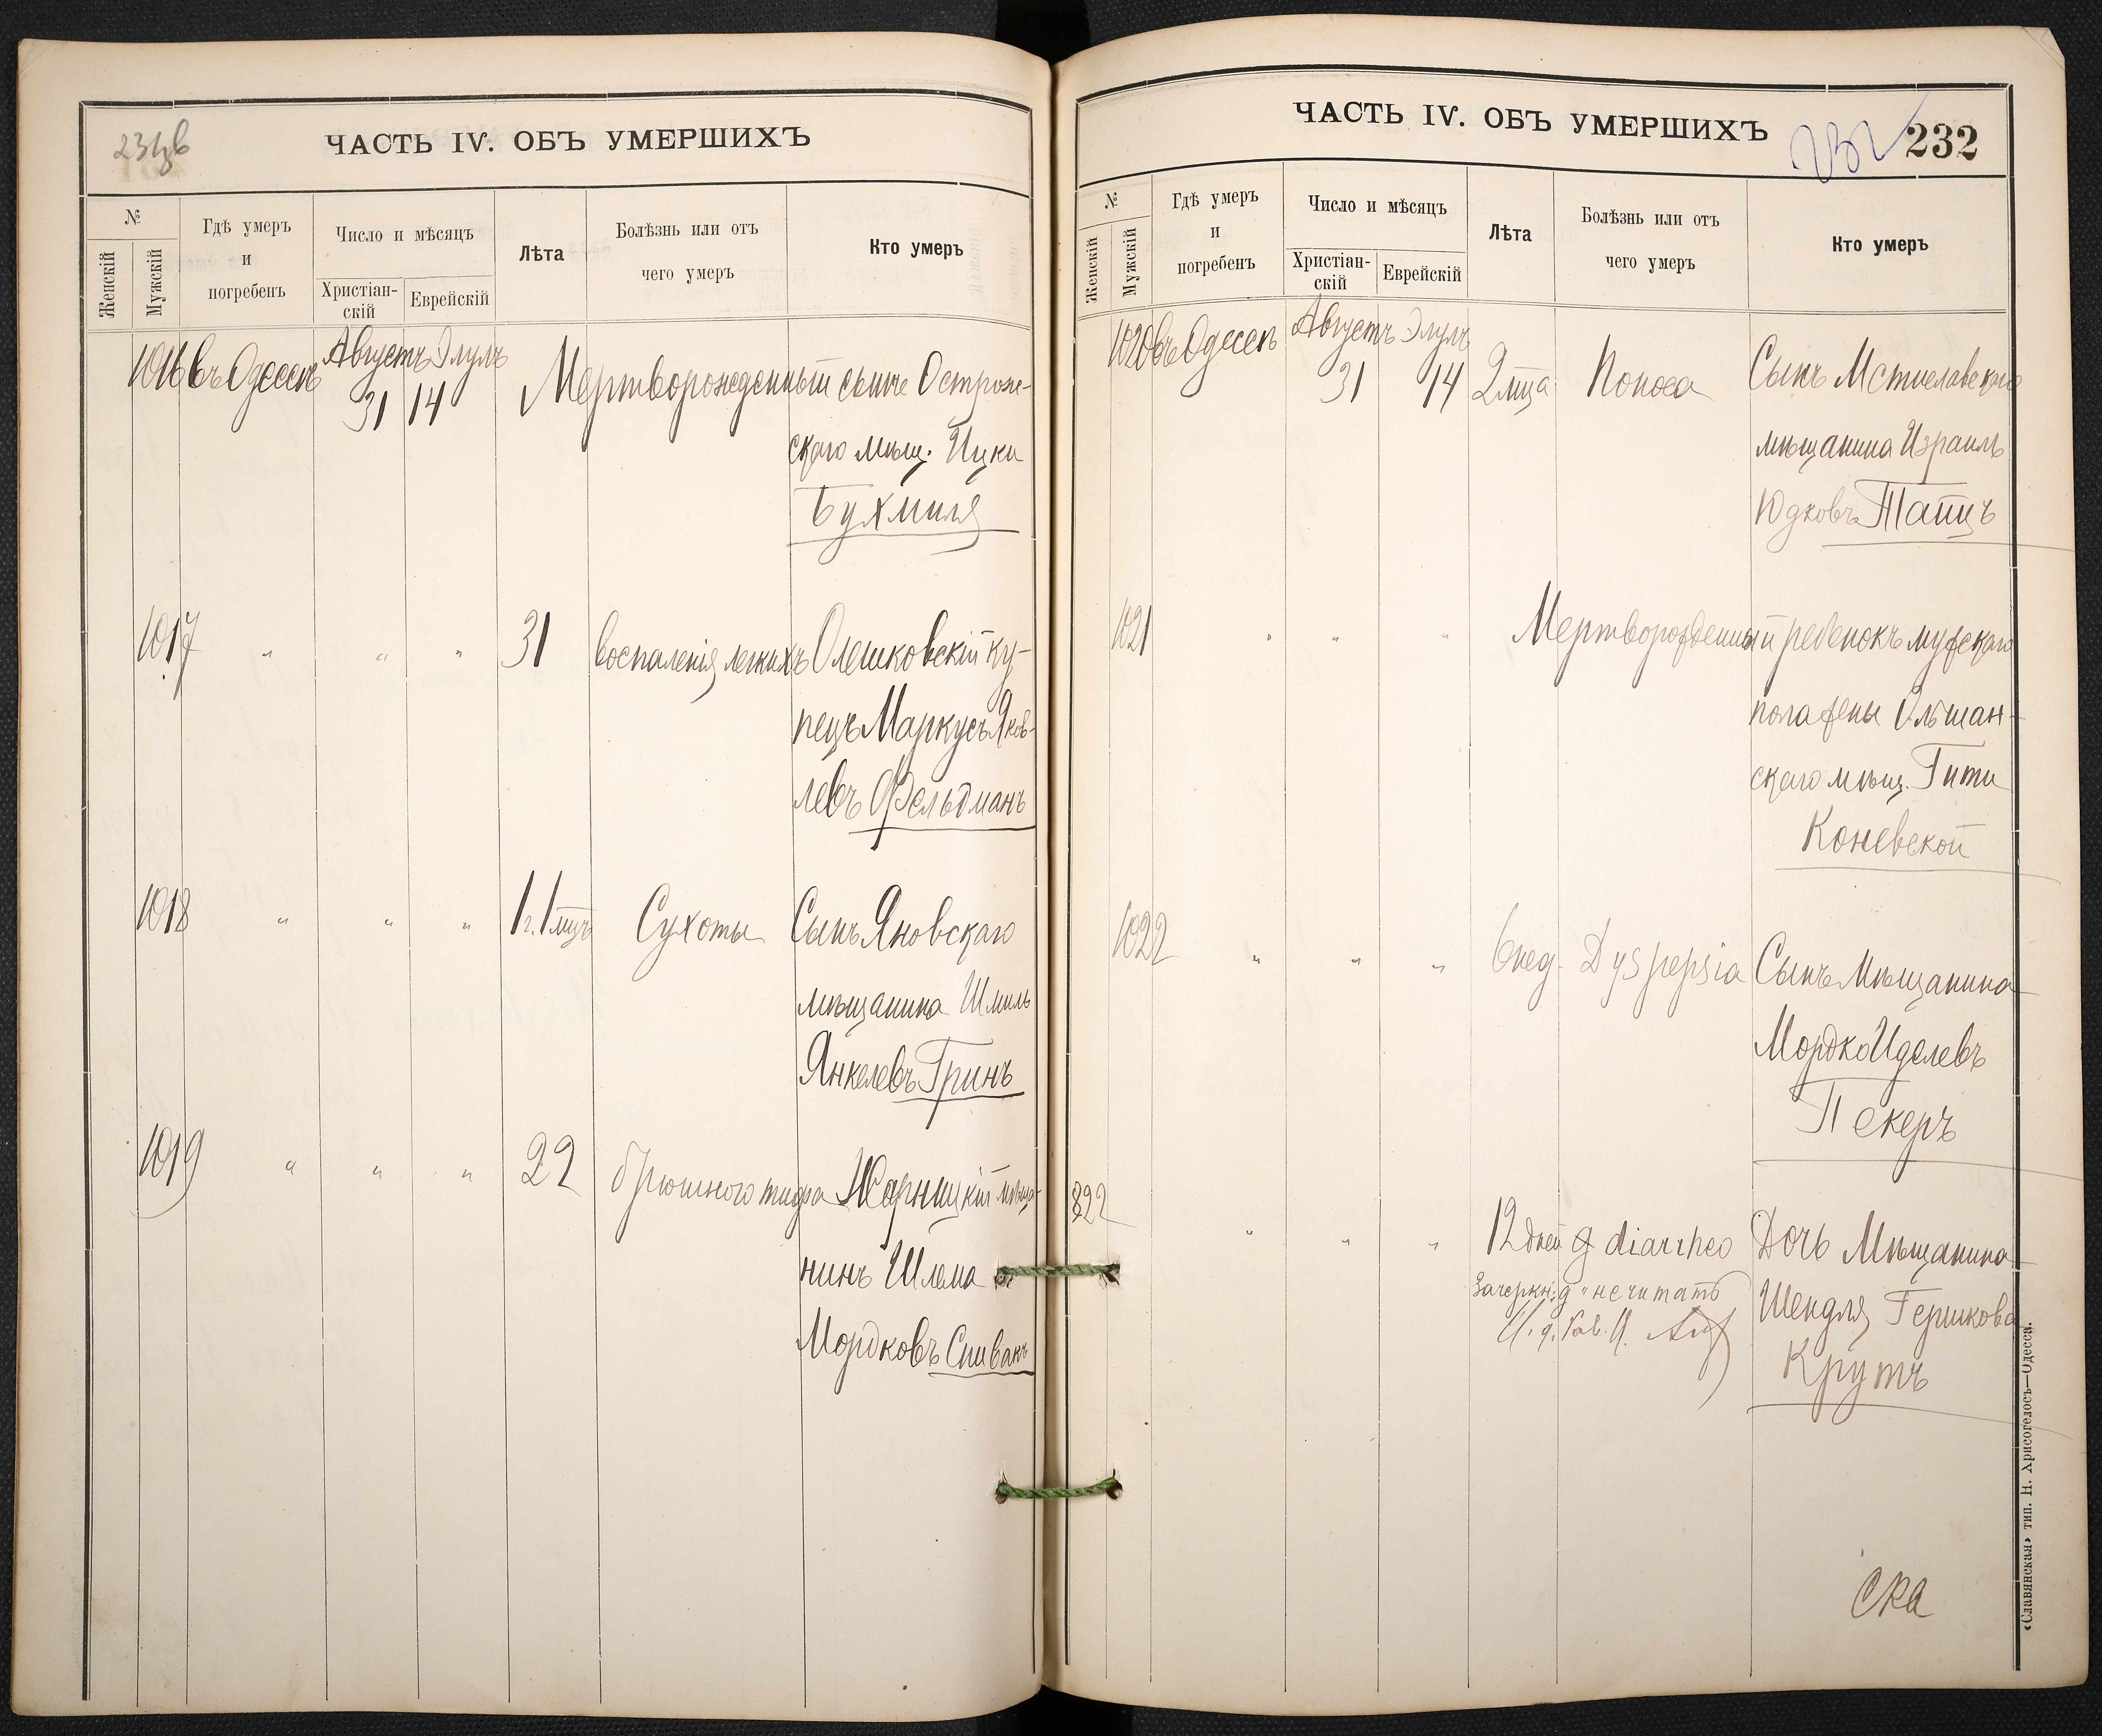 231об
ЧАСТЬ IV. ОБЪ УМЕРШИХЪ
№
Женскій
Мужскій
Гдѣ умеръ
и
погребенъ
Число и мѣсяцъ
Христіан-
скій
Еврейскій
Лѣта
Болѣзнь или отъ
чего умеръ
Кто умеръ
1016 въ Одессѣ Августъ Элулъ
31 14 Мертворожденный сынъ Острож-
скаго мѣщ. Ицки
Бухмиля
1017 " " " 31 воспаленія легкихъ Олешковскій ку-
пецъ Маркусъ Яков-
левъ Фельдманъ
1018 " " " 1 г. 1 мцъ Сухоты Сынъ Яновскаго
мѣщанина Шмиль
Янкелевъ Гринъ
1019 " " " 22 брюшного тифа Жарницкій мѣща-
нинъ Шлема
Мордковъ Спивакъ
ЧАСТЬ IV. ОБЪ УМЕРШИХЪ
232
232
№
Женскій
Мужскій
Гдѣ умеръ
и
погребенъ
Число и мѣсяцъ
Христіан-
скій
Еврейскій
Лѣта
Болѣзнь или отъ
чего умеръ
Кто умеръ
1020 въ Одессѣ Августъ Элулъ
31 14 2 мца Поноса Сынъ Мстиславскаго
мѣщанина Израиль
Юдковъ Тайцъ
1021 " " " Мертворожденный ребенокъ мужскаго
пола жены Ольшан-
скаго мѣщ. Гити
Коневской
1022 " " " 6 нед. Dyspepsia Сынъ Мѣщанина
Мордко Иделевъ
Пекеръ
822 " " " 12 дней д diarrheo Дочь Мѣщанина
Зачеркн. "д" не читать Шендля Гершкова
И. д. Рав. Крутъ
ска
«Славянская» тип. Н. Хрисогелосъ—Одесса.